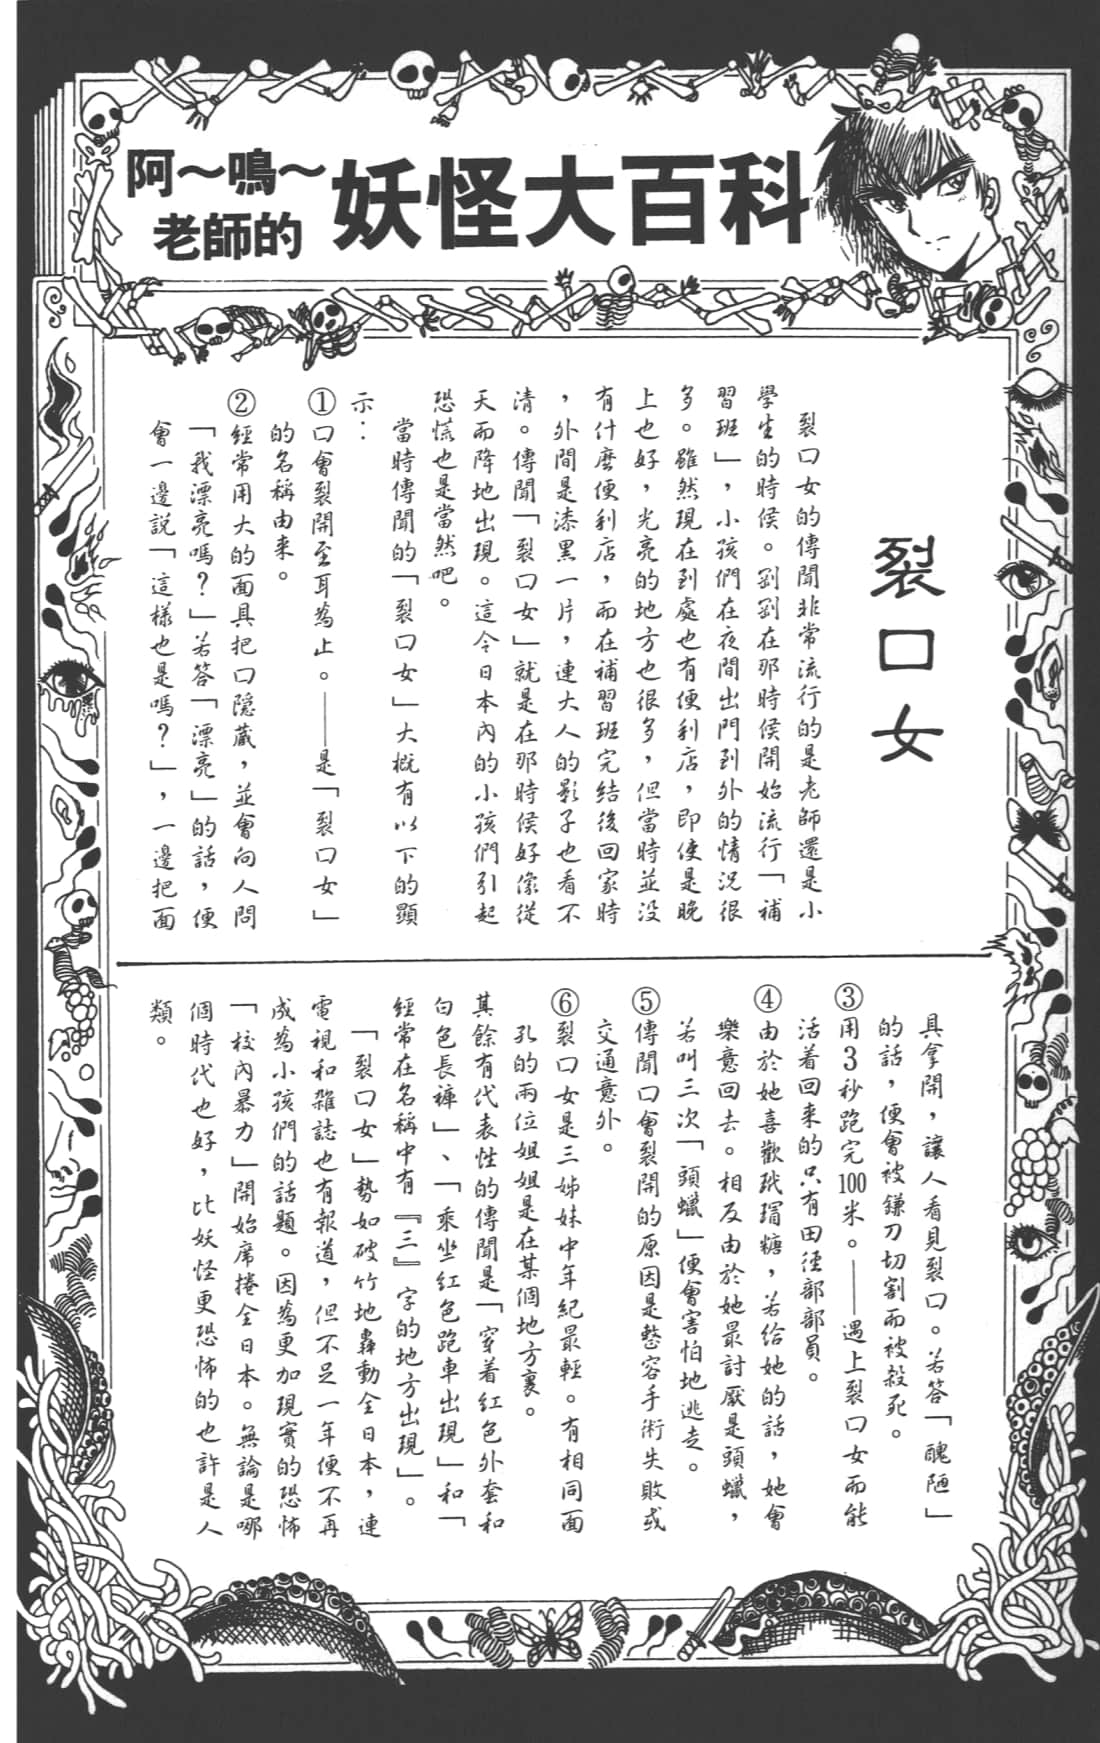 阿～鳴～
老師的
妖怪大百科
裂口女
裂口女的傳聞非常流行的是老師還是小
學生的時侯。剛剛在那時侯開始流行「補
習班」，小孩們在夜間出門到外的情況很
多。雖然現在到處也有便利店，即使是晚
上也好，光亮的地方也很多，但當時並没
有什麼便利店，而在補習班完結後回家時
，外間是漆黑一片，連大人的影子也看不
清。傳聞「裂口女」就是在那時侯好像從
天而降地出現。這令日本內的小孩們引起
恐慌也是當然吧。
當時傳聞的「裂口女」大概有以下的顯
示：
①口會裂開至耳為止。——是「裂口女」
的名稱由來。
②經常用大的面具把口隱蔵，並會向人問
「我漂亮嗎？」若答「漂亮」的話，便
會一邊説「這樣也是嗎？」，一邊把面
具拿開，讓人看見裂口。若答「醜陋」
的話，便會被鎌刀切割而被殺死。
③用3秒跑完100米。——遇上裂口女而能
活着回來的只有田徑部部員。
④由於她喜歡玳瑁糖，若給她的話，她會
樂意回去。相反由於她最討厭是頭蠟，
若叫三次「頭蠟」便會害怕地逃走。
⑤傳聞口會裂開的原因是整容手術失敗或
交通意外。
⑥裂口女是三姊妹中年紀最輕。有相同面
孔的兩位姐姐是在某個地方裏。
其餘有代表性的傳聞是「穿着紅色外套和
白色長褲」、「乘坐紅色跑車出現」和「
經常在名稱中有『三』字的地方出現」。
「裂口女」勢如破竹地轟動全日本，連
電視和雜誌也有報道，但不足一年便不再
成為小孩們的話題。因為更加現實的恐怖
「校內暴力」開始席捲全日本。無論是哪
個時代也好，比妖怪更恐怖的也許是人
類。